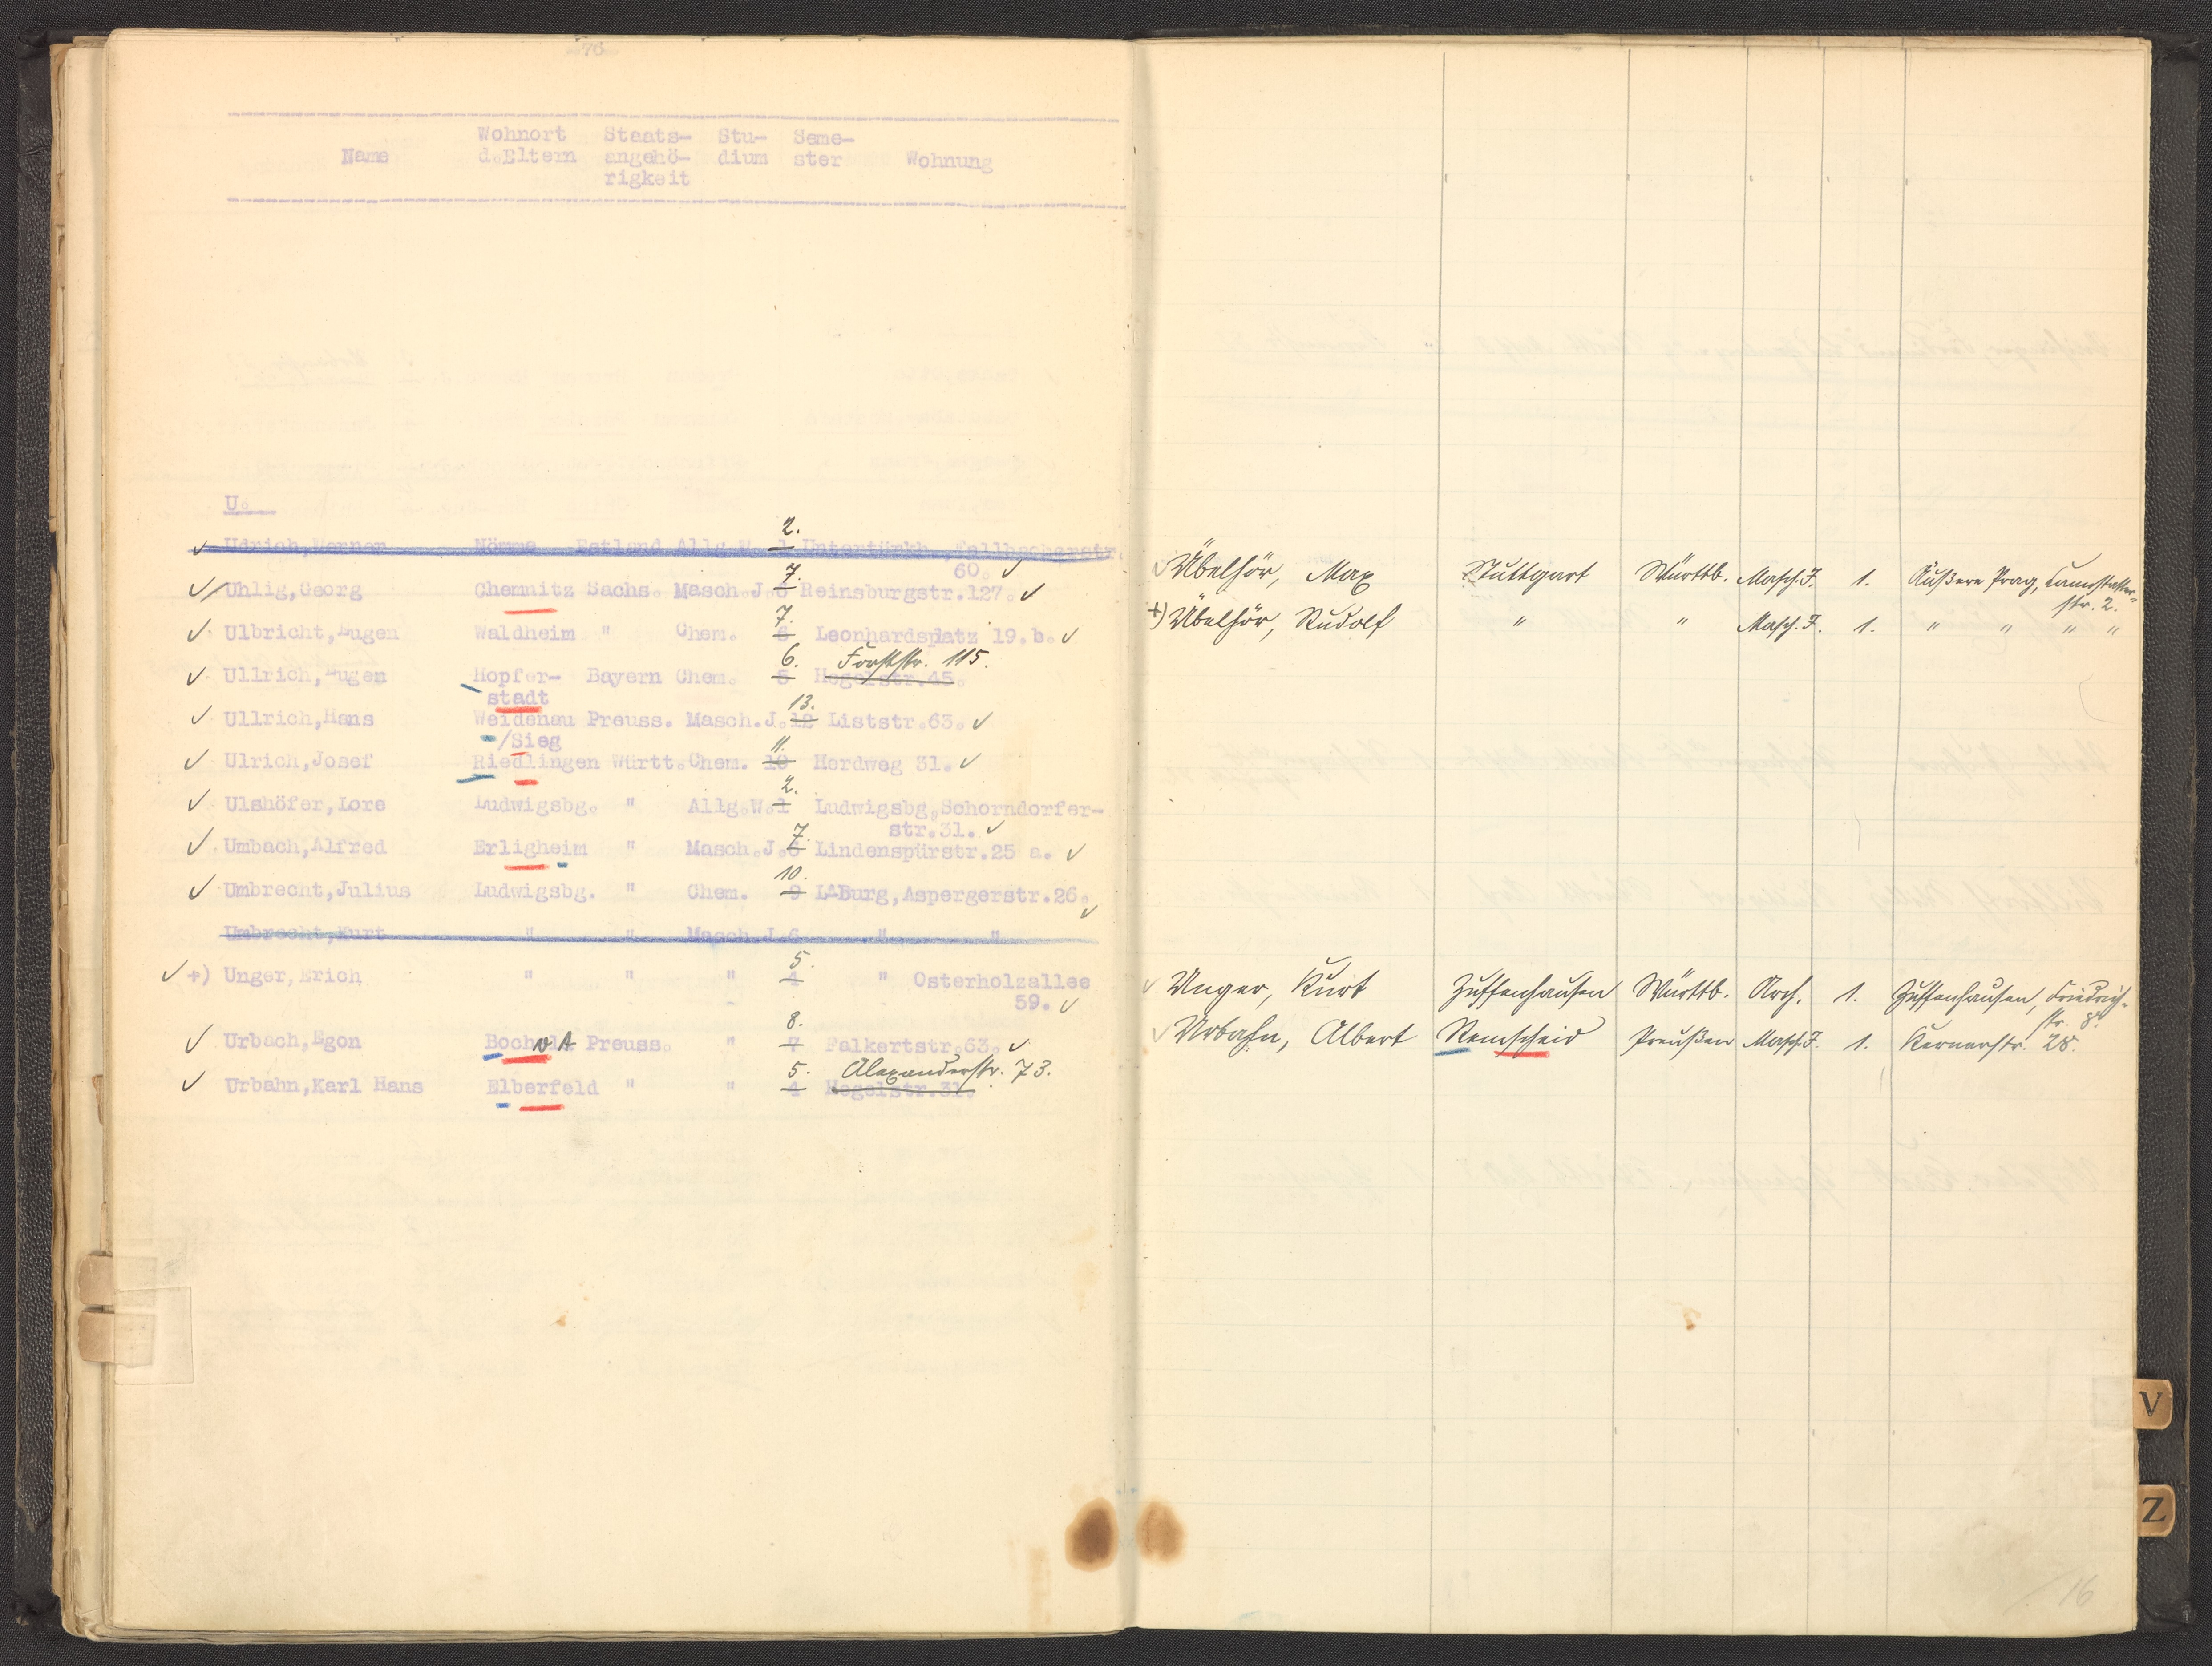 -76-
Name Wohnort d.Eltern Staats- angehö- rigkeit Stu- dium Seme- ster Wohnung
U.
2.
Udrich,Werner Nömme Estland Allg.W. 1 Untertürkh.,Fallbacherstr.
60.
7.
Uhlig,Georg Chemnitz Sachs. Masch.J. 6 Reinsburgstr.127.
7.
Ulbricht,Eugen Waldheim " Chem. 6 Leonhardsplatz 19.b.
6. Forststr. 115.
Ullrich,Eugen Hopfer- Bayern Chem. 5 Hegelstr.45.
stadt
13.
Ullrich,Hans Weidenau Preuss. Masch.J. 12 Liststr.63.
/Sieg
11.
Ulrich,Josef Riedlingen Württ. Chem. 10 Herdweg 31.
2.
Ulshöfer,Lore Ludwigsbg. " Allg.W. 1 Ludwigsbg.Schorndorfer-
str.31.
7.
Umbach,Alfred Erligheim " Masch.J. 6 Lindenspürstr.25 a.
10.
Umbrecht,Julius Ludwigsbg. " Chem. 9 L-Burg,Aspergerstr.26.
Umbrecht,Kurt " " Masch.J. 6 " "
5.
+) Unger,Erich " " " 4 " Osterholzallee
59.
8.
Urbach,Egon Bocholt Preuss. " 7 Falkertstr.63.
5. Alexanderstr. 73.
Urbahn,Karl Hans Elberfeld " " 4 Hegelstr.31.
Übelhör, Max Stuttgart Württb. Masch.J. 1. Äußere Prag, Cannstatter-
str. 2.
+) Übelhör, Rudolf " " Masch.J. 1. " " " "
Unger, Kurt Zuffenhausen Württb. Arch. 1. Zuffenhausen, Friedrich-
str. 8.
Urbahn, Albert Remscheid Preußen Masch.J. 1. Kernerstr. 28.
V
Z
16